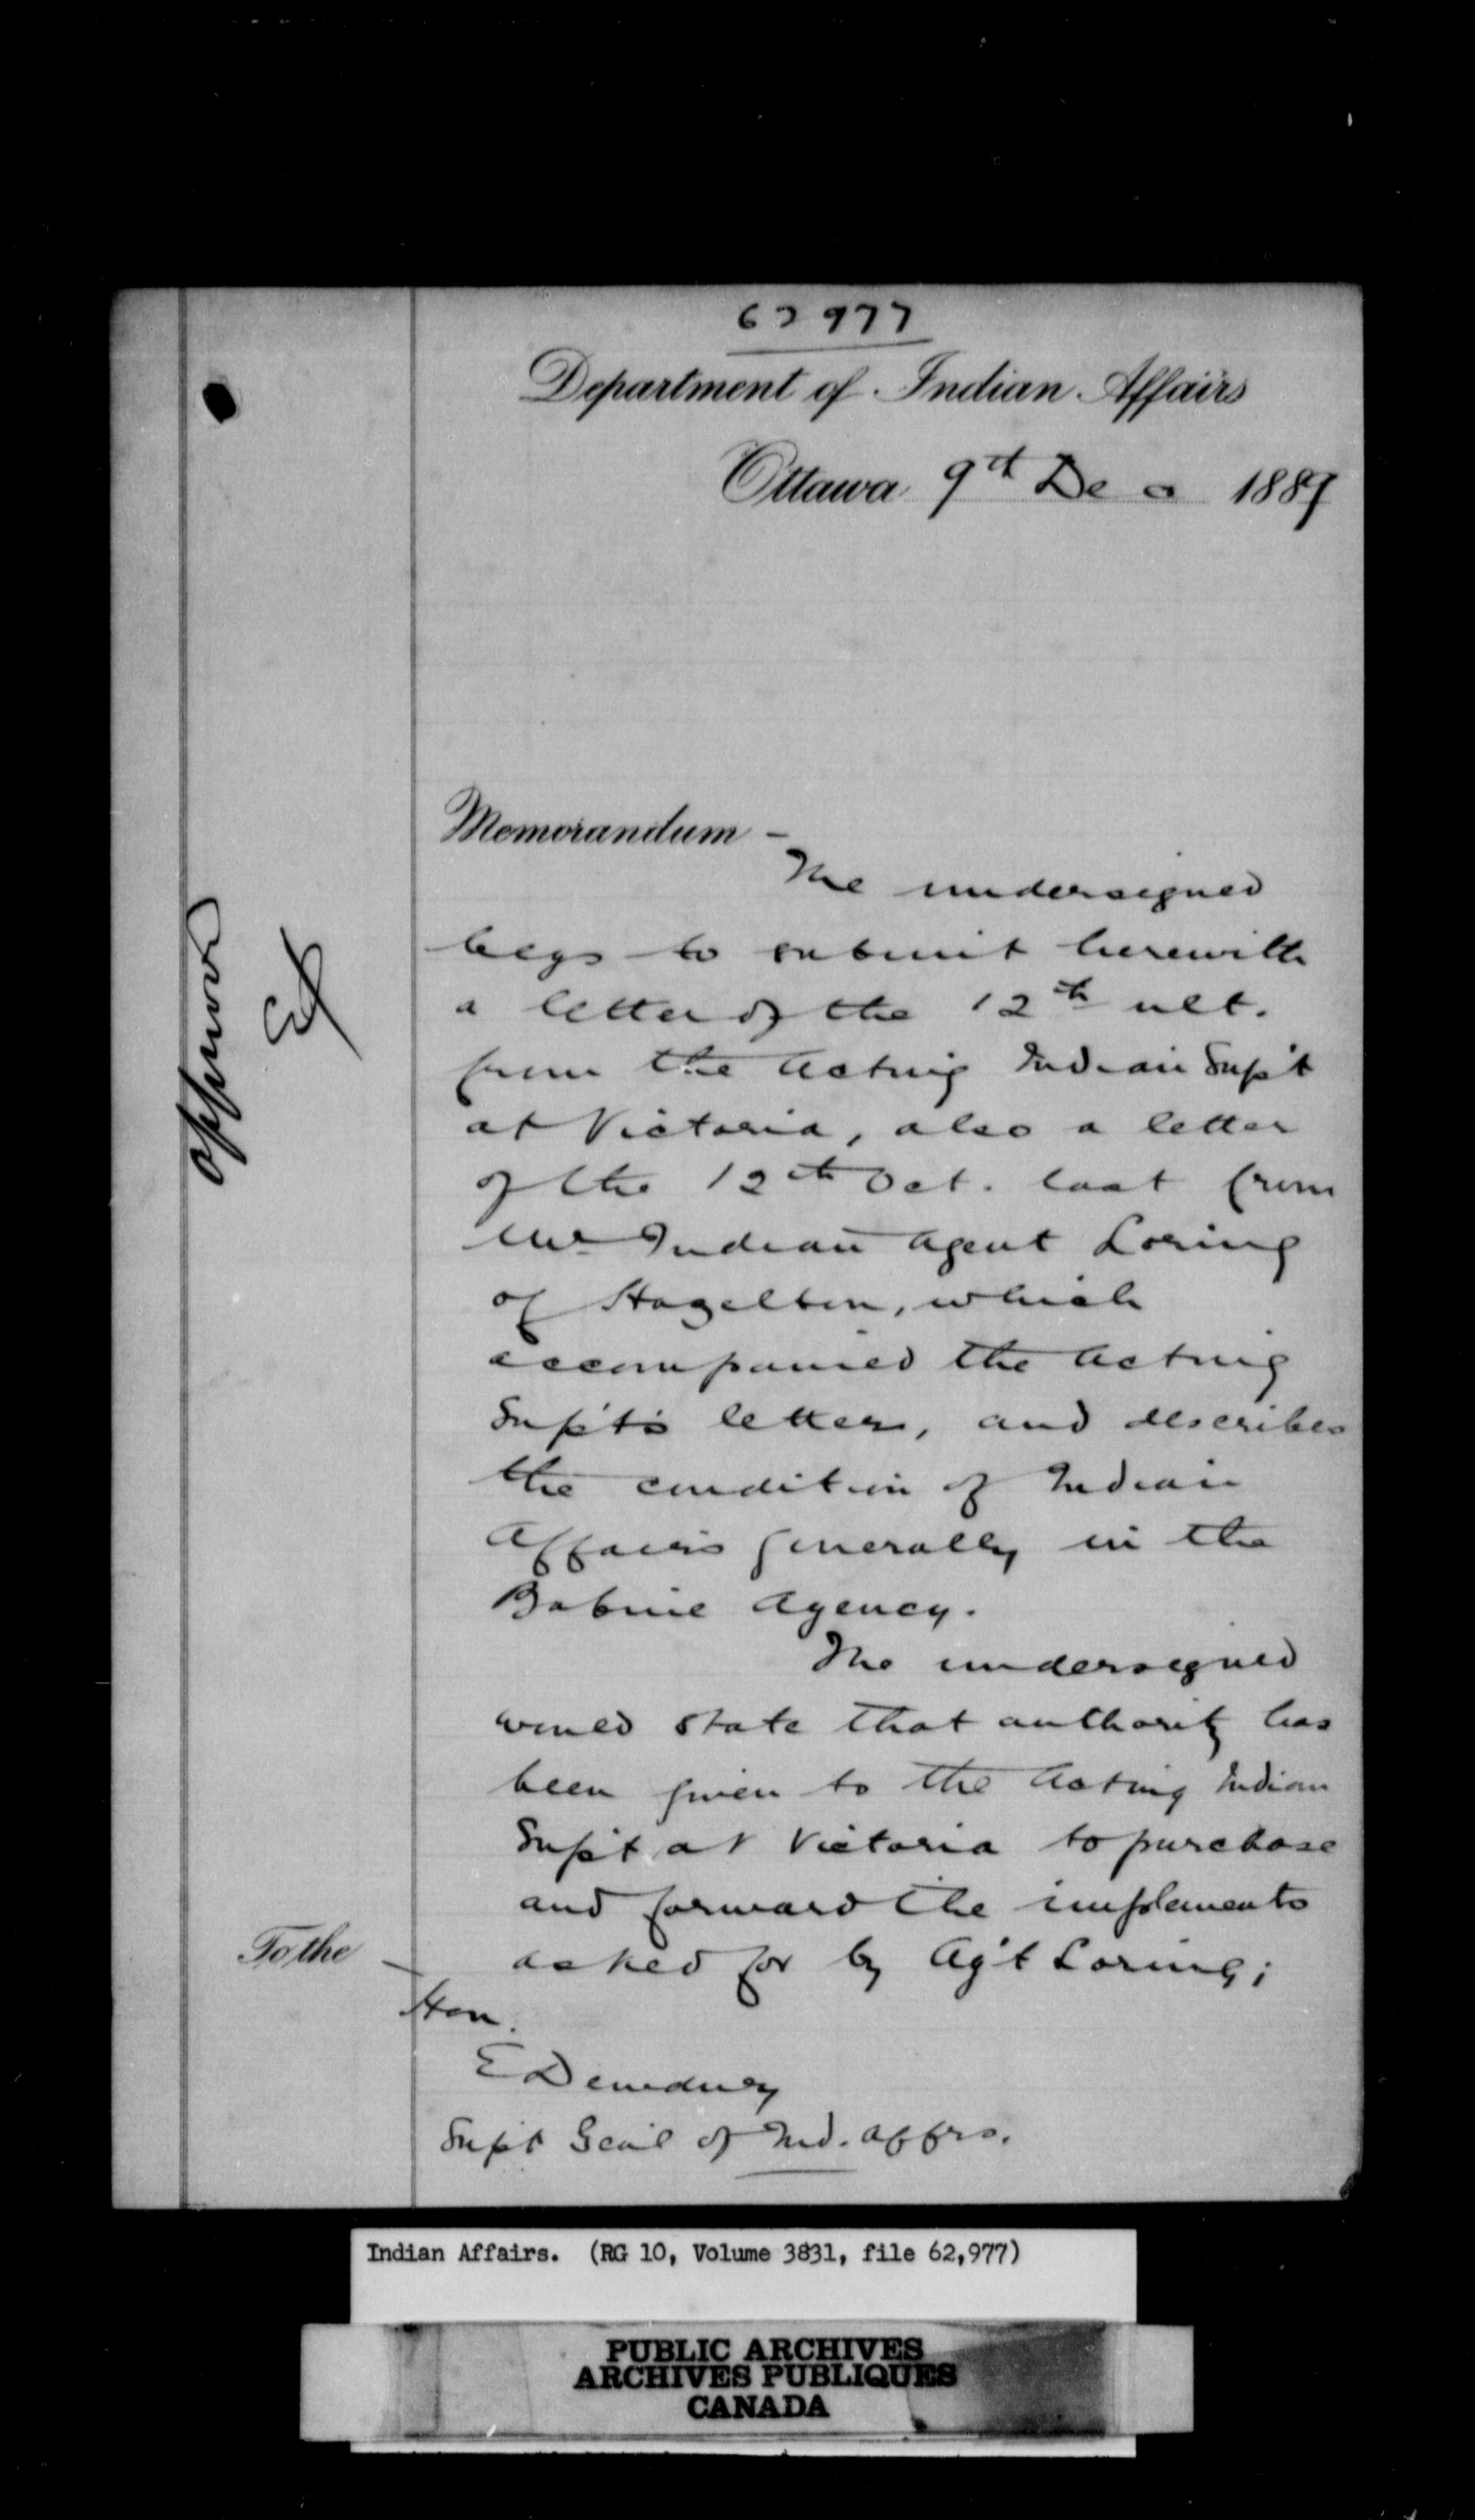 62977
Department of Indian Affairs
Ottawa 9th Dec 1889
Memorandum -
The undersigned
begs to submit herewith
a letter of the 12th ult.
from the Acting Indian Sup't
at Victoria, also a letter
of the 12th Oct. last from
Mr Indian Agent Loring
of Hazelton, which
accompanied the Acting
Sup't's letter, and describes
the condition of Indian
Affairs generally in the
Babine Agency.
The undersigned
would state that authority has
been given to the Acting Indian
Sup't at Victoria to purchase
and forward the implements
asked for by Ag't Loring;
To the
Hon.
E Dewdney
Sup't Gen'l of Ind. Affrs.
Approved
ED
Indian Affairs. (RG 10, Volume 3831, file 62,977)
PUBLIC ARCHIVES
ARCHIVES PUBLIQUES
CANADA